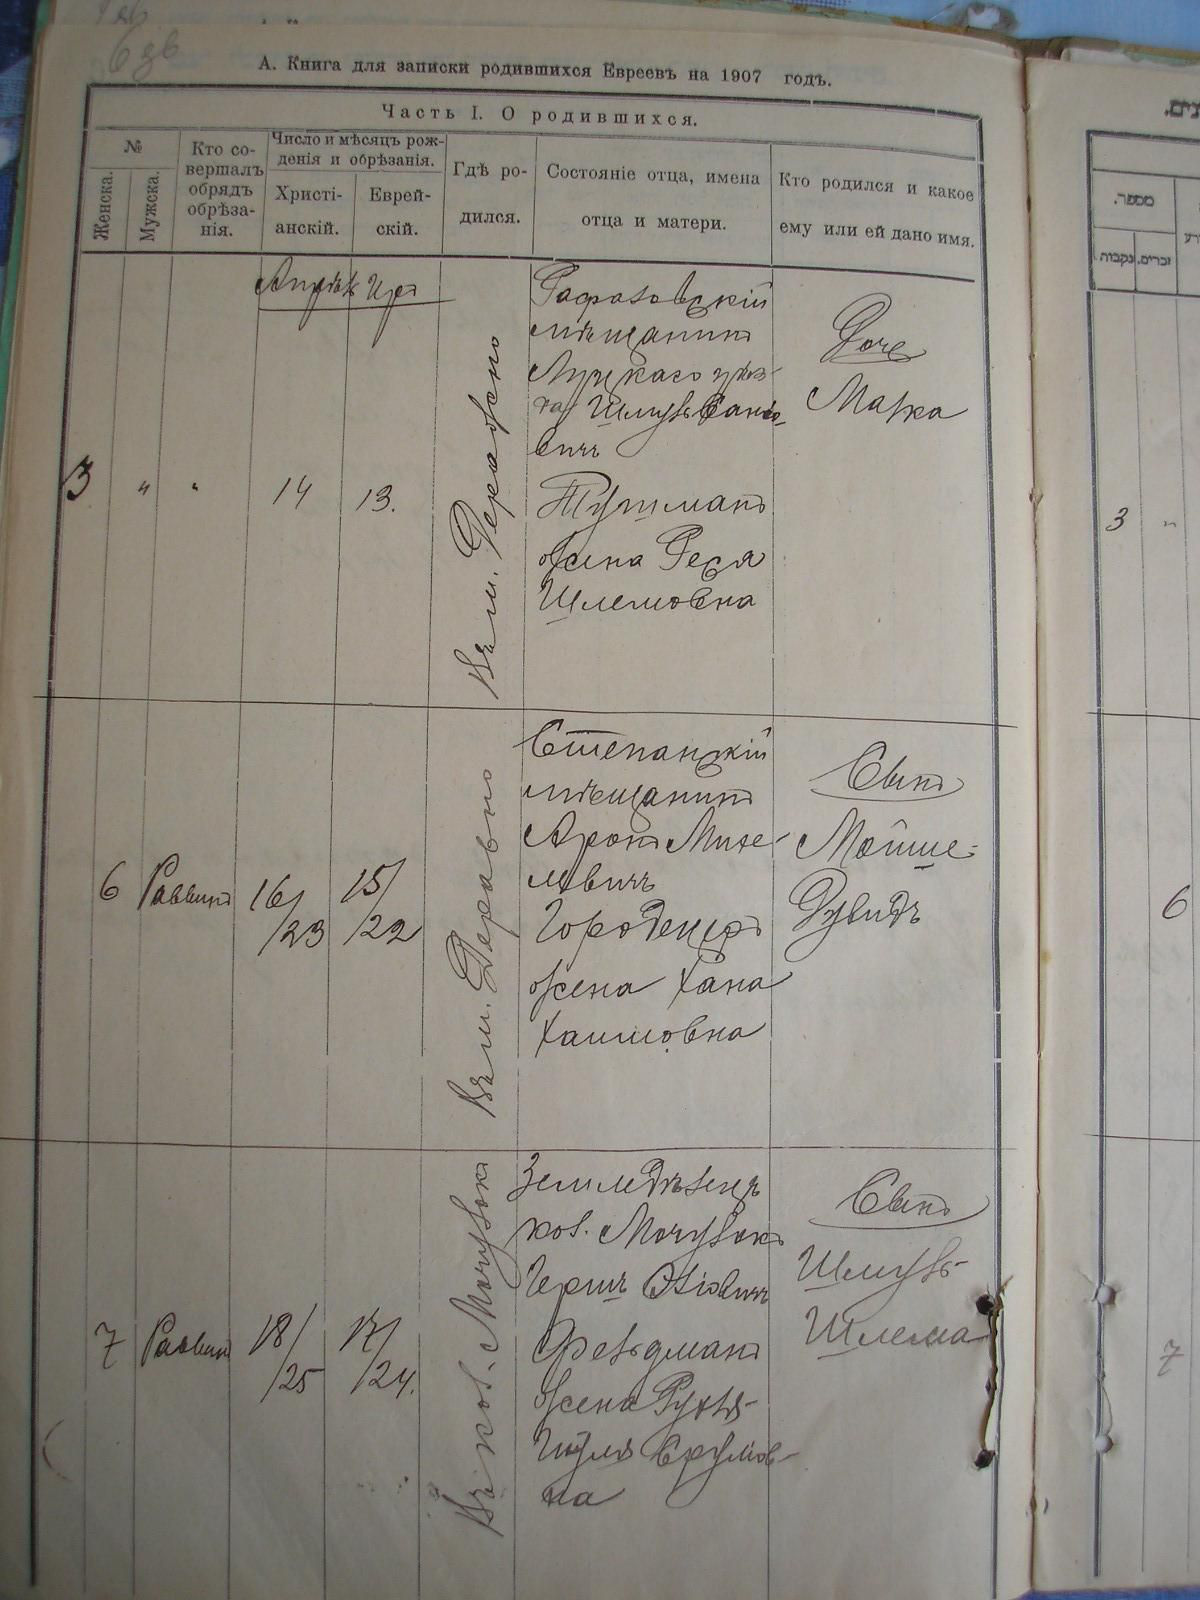 А. Книга для записки родившихся Евреевъ на 1907 годъ.
Часть I. О родившихся.
№
Женска.
Мужска.
Кто со-
вершалъ
обрядъ
обрѣза-
нія.
Число и мѣсяцъ рож-
денія и обрѣзанія.
Христі-
анскій.
Еврей-
скій.
Гдѣ ро-
дился.
Состояніе отца, имена
отца и матери.
Кто родился и какое
ему или ей дано имя.
3
"
"
Апрѣль
14
Иръ
13.
Въ м. Деражно
мѣщанинъ
Луцкаго уѣз-
да Шмуль
вичъ
Тушманъ
жена Рейзя
Шлемовна
Дочь
Марка
6
Раввинъ
16/
/23
15/
/22
Въ м. Деражно
Степанскій
мѣщанинъ
Аронъ Михе-
левичъ
Городецеръ
жена Хана
Хаимовна
Сынъ
Мойше-
Дувидъ
7
Раввинъ
18/
/25
17/
/24.
Въ кол. Мочулокъ
Земледѣлецъ
кол. Мочулокъ
Гершъ
Фельдманъ
жена Рухль-
Сруліов-
на
Сынъ
Шмуль-
Шлема
מספר.
נקבות
זכרים.
3
"
6
7